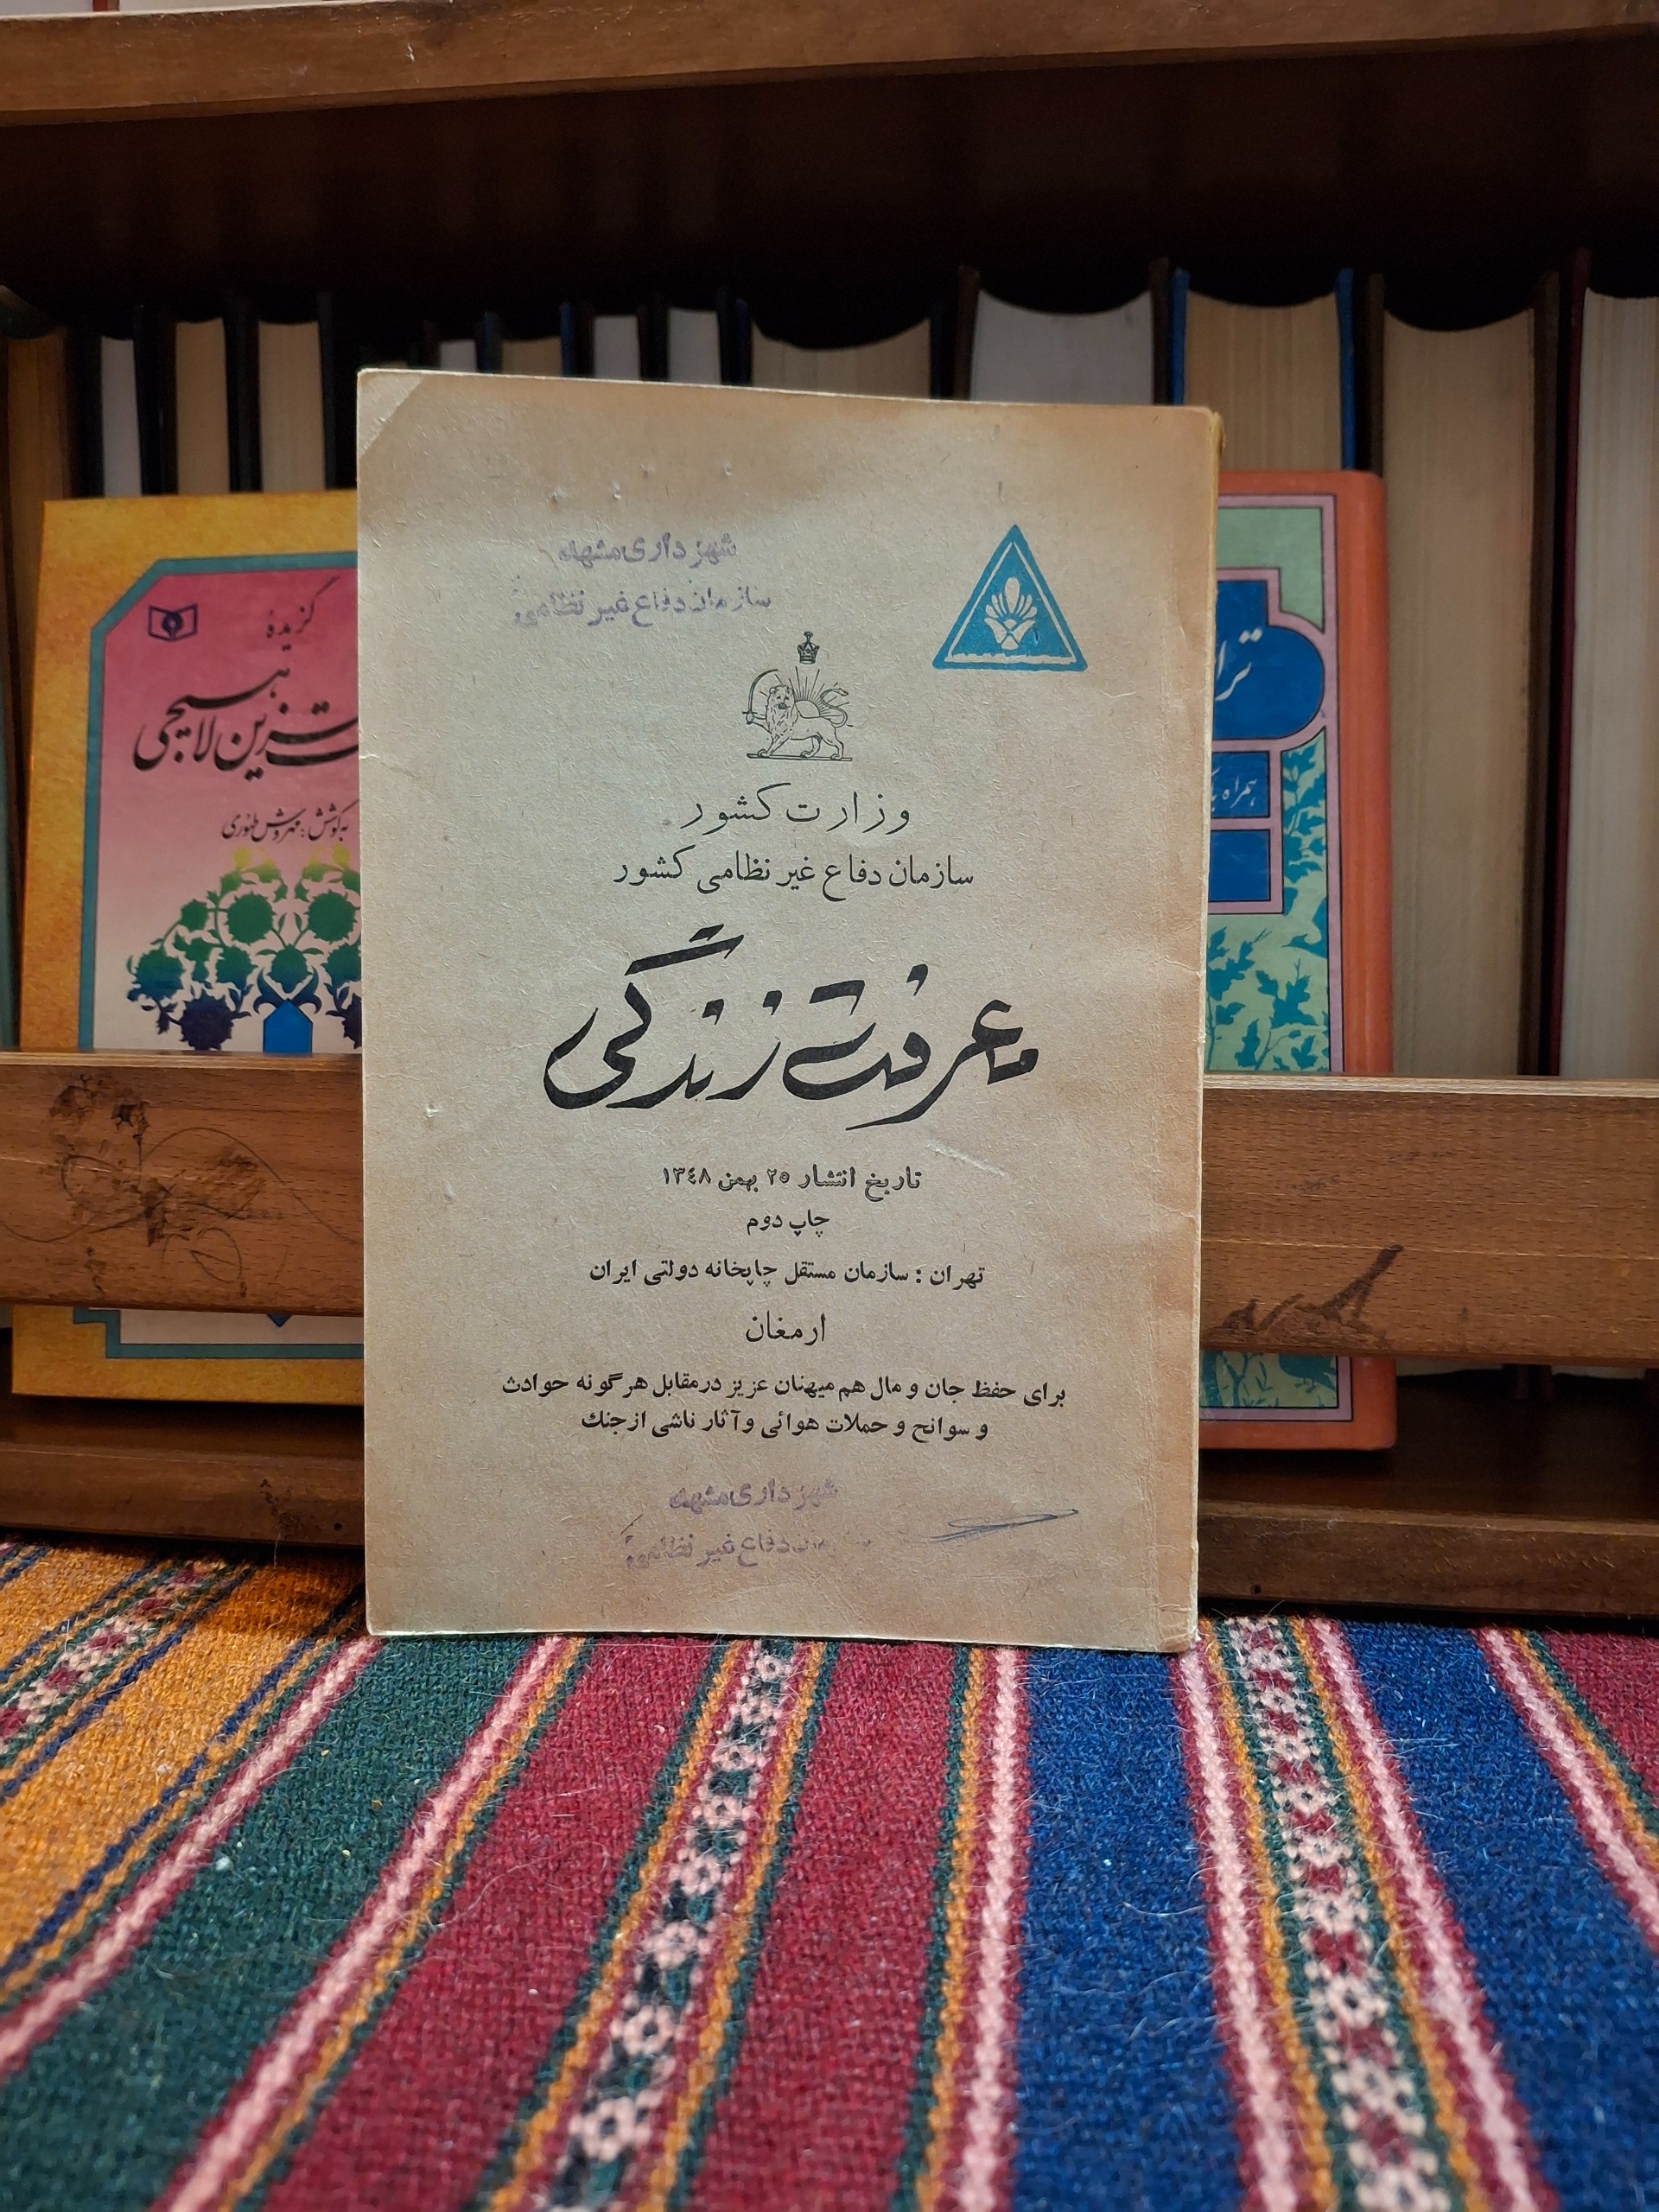 شهرداری مشهد
سازمان دفاع غیر نظامی
وزارت کشور
سازمان دفاع غیر نظامی کشور
معرفت زندگی
تاریخ انتشار ۲۵ بهمن ۱۳٤۸
چاپ دوم
تهران : سازمان مستقل چاپخانه دولتی ایران
ارمغان
برای حفظ جان و مال هم میهنان عزیز در مقابل هر گونه حوادث
و سوانح و حملات هوائی و آثار ناشی از جنك
شهرداری مشهد
دفاع غیر نظامی
گزیدهٔ
حزین لاهیجی
به کوشش :
همراه